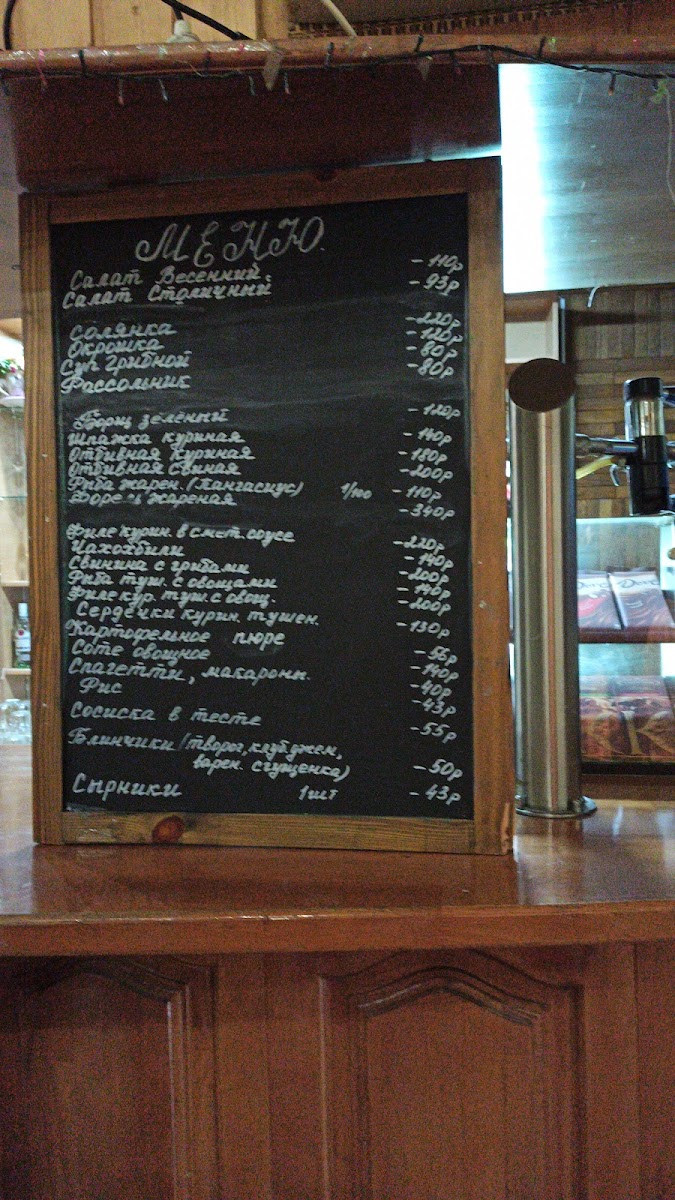 МЕНЮ.
Салат Весенний. - 110р
Салат Столичный - 93р
Солянка - 220р
Окрошка - 120р
Суп грибной - 80р
Рассольник - 80р
Борщ зелёный - 120р
Шпажка куриная - 140р
Отбивная куриная - 180р
Отбивная свиная - 200р
Рыба жарен. (Пангасиус) 1/100 - 110р
Форель жареная - 340р
Филе курин. в смет. соусе - 220р
Чахохбили - 140р
Свинина с грибами - 200р
Рыба туш. с овощами - 140р
Филе кур. туш. с овощ. - 200р
Сердечки курин. тушен. - 130р
Картофельное пюре - 55р
Соте овощное - 140р
Спагетти, макароны. - 40р
Рис - 43р
Сосиска в тесте - 55р
Блинчики (творог, клуб. джем,
варен. сгущенка) - 50р
Сырники 1шт - 43р
Dove